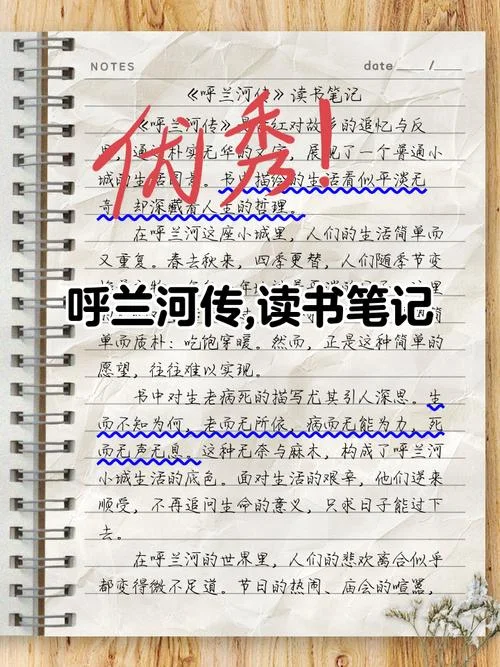 NOTES
date ___ / ___
《呼兰河传》读书笔记
《呼兰河传》是 红对故 的追忆与反
，通 朴实无华的文字，展现了一个普通小
城的生活图景。书中描绘的生活看似平淡无
奇，却深藏着人生的哲理。
优秀!
在呼兰河这座小城里，人们的生活简单而
又重复。春去秋来，四季更替，人们随季节变
呼兰河传,读书笔记
单而质朴：吃饱穿暖。然而，正是这种简单的
愿望，往往难以实现。
书中对生老病死的描写尤其引人深思。生
而不知为何，老而无所依，病而无能为力，死
而无声无息。这种无奈与麻木，构成了呼兰河
小城生活的底色。面对生活的艰辛，他们逆来
顺受，不再追问生命的意义，只求日子能过下
去。
在呼兰河的世界里，人们的悲欢离合似乎
都变得微不足道。节日的热闹、庙会的喧嚣，